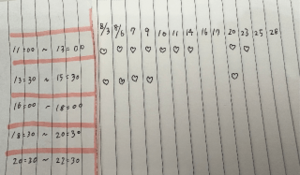 8/3 8/6 7 9 10 11 14 16 17 20 23 25 28
11:00 ~ 13:00 ♡ ♡ ♡ ♡ ♡ ♡ ♡ ♡ ♡
13:30 ~ 15:30 ♡ ♡ ♡ ♡ ♡
16:00 ~ 18:00
18:30 ~ 20:30
20:30 ~ 22:30